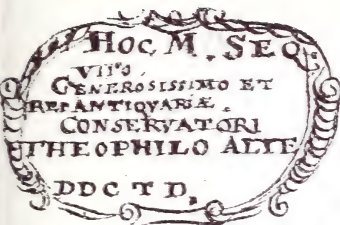 HOC, M. SEQ,
VIRO,
GENEROSISSIMO ET
REI ANTIQVARIÆ.
CONSERVATORI
THEOPHILO ALTE
DDCTD,